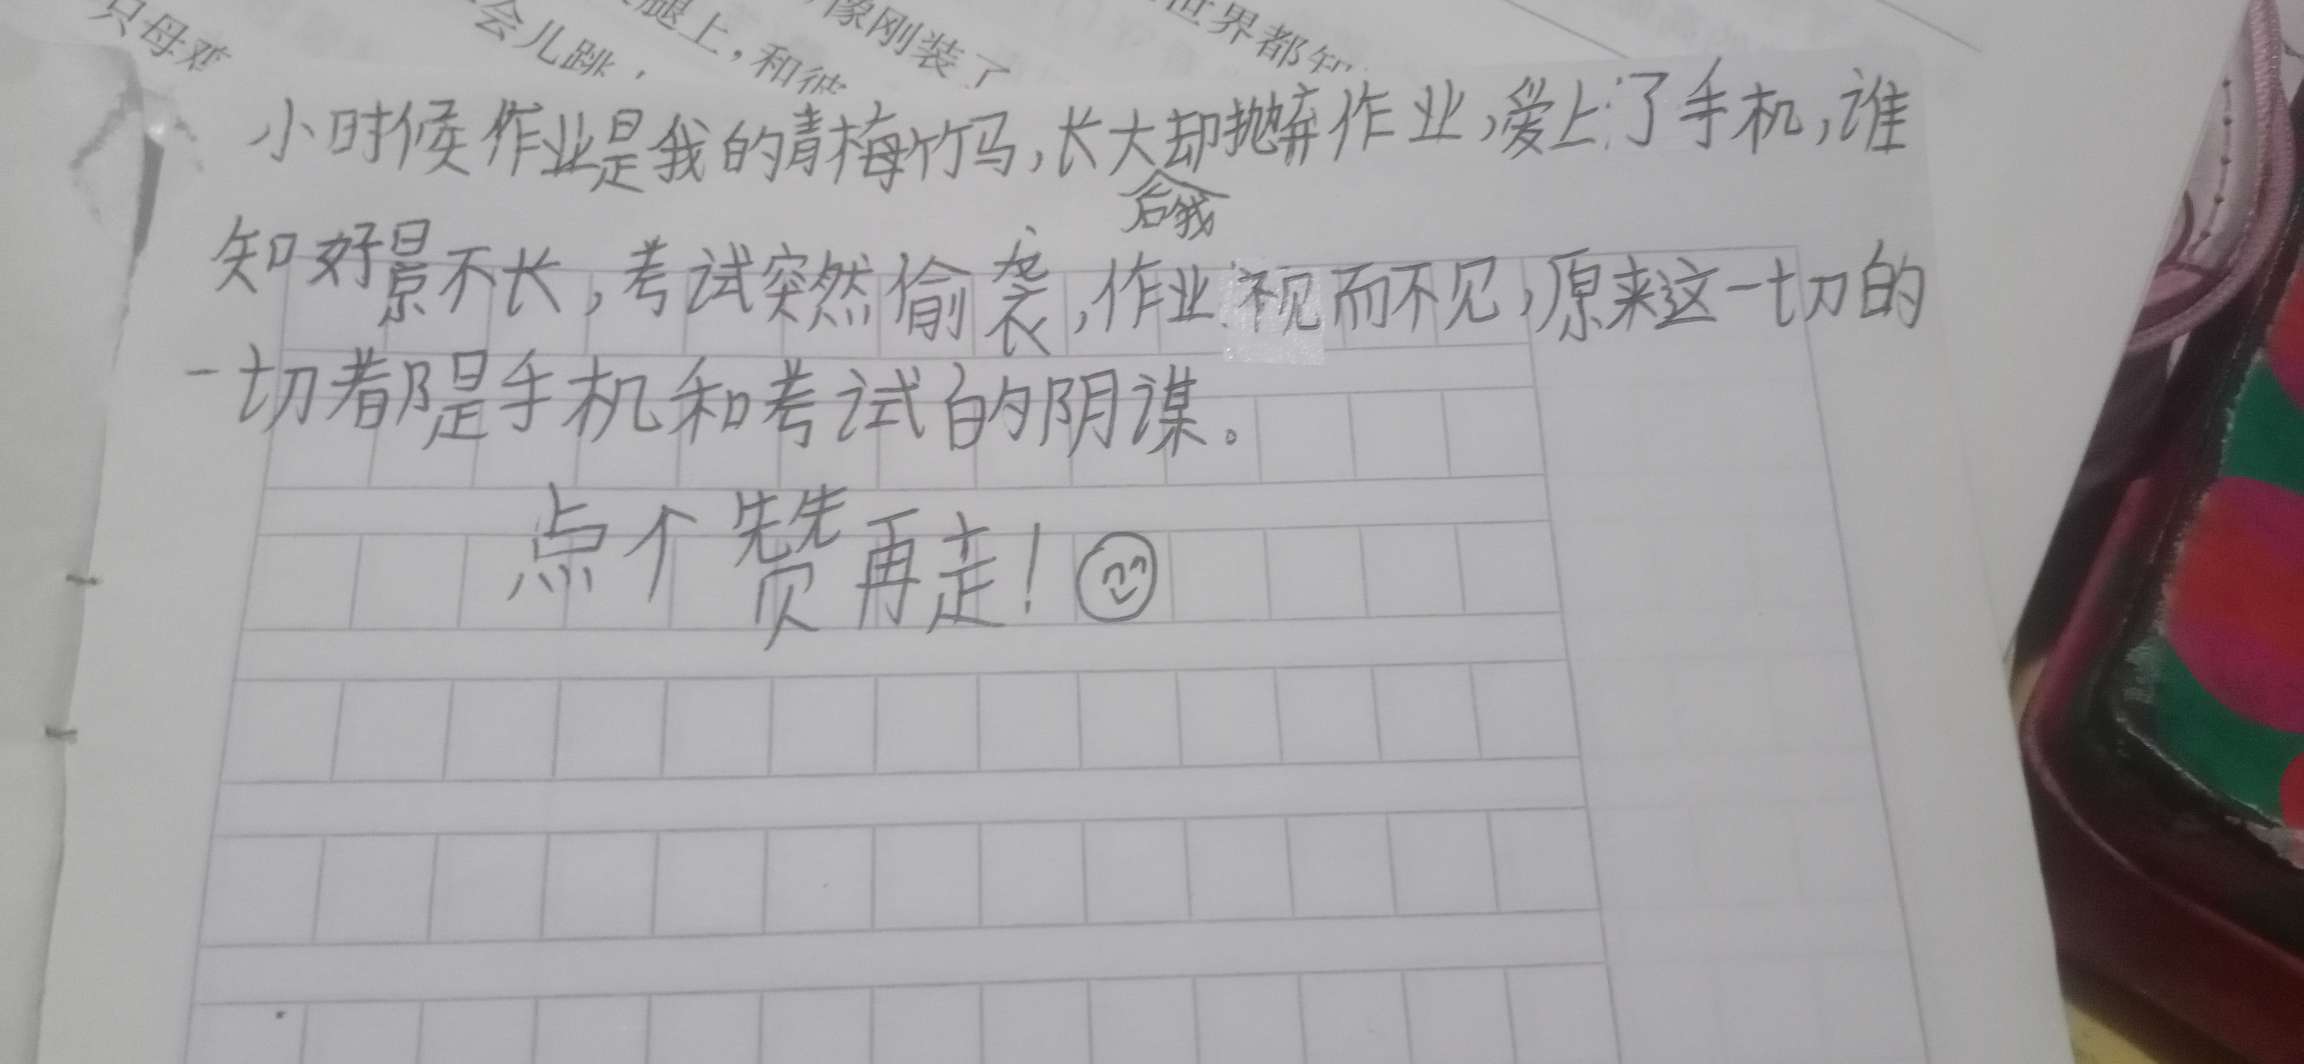 只母鸡
会儿跳,
腿上,和彼
像刚装了
世界都知
小时候作业是我的青梅竹马,长大后我却抛弃作业,爱上了手机,谁
知好景不长,考试突然偷袭,作业视而不见,原来这一切的
一切都是手机和考试的阴谋。
点个赞再走!